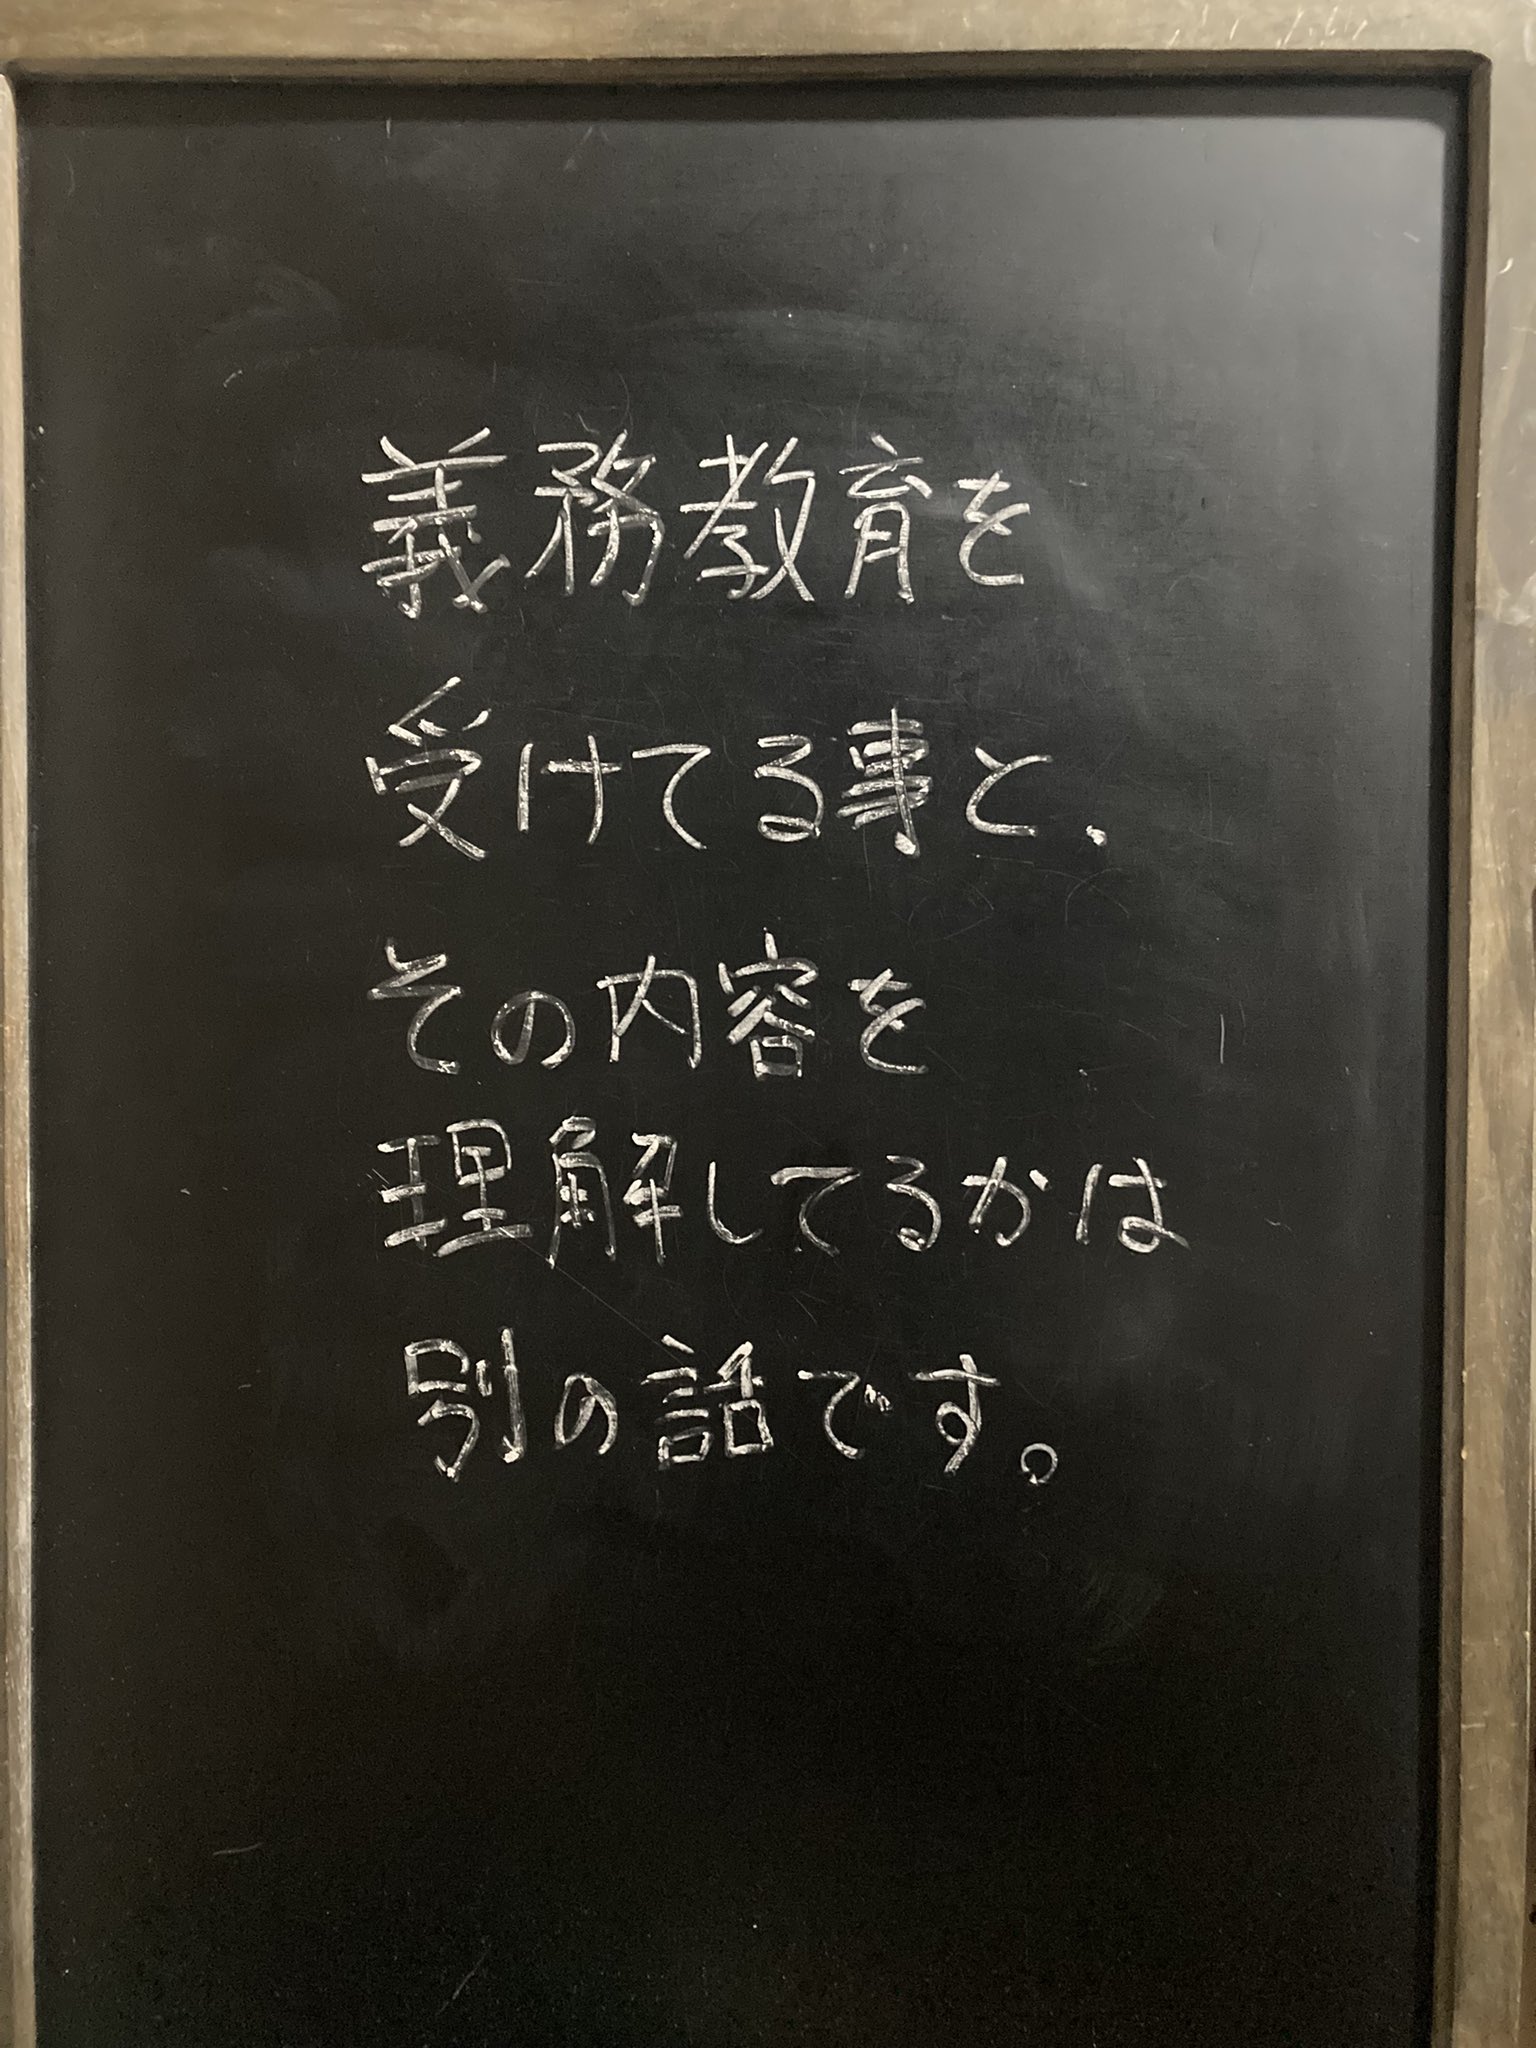 義務教育を
受けてる事と、
その内容を
理解してるかは
別の話です。